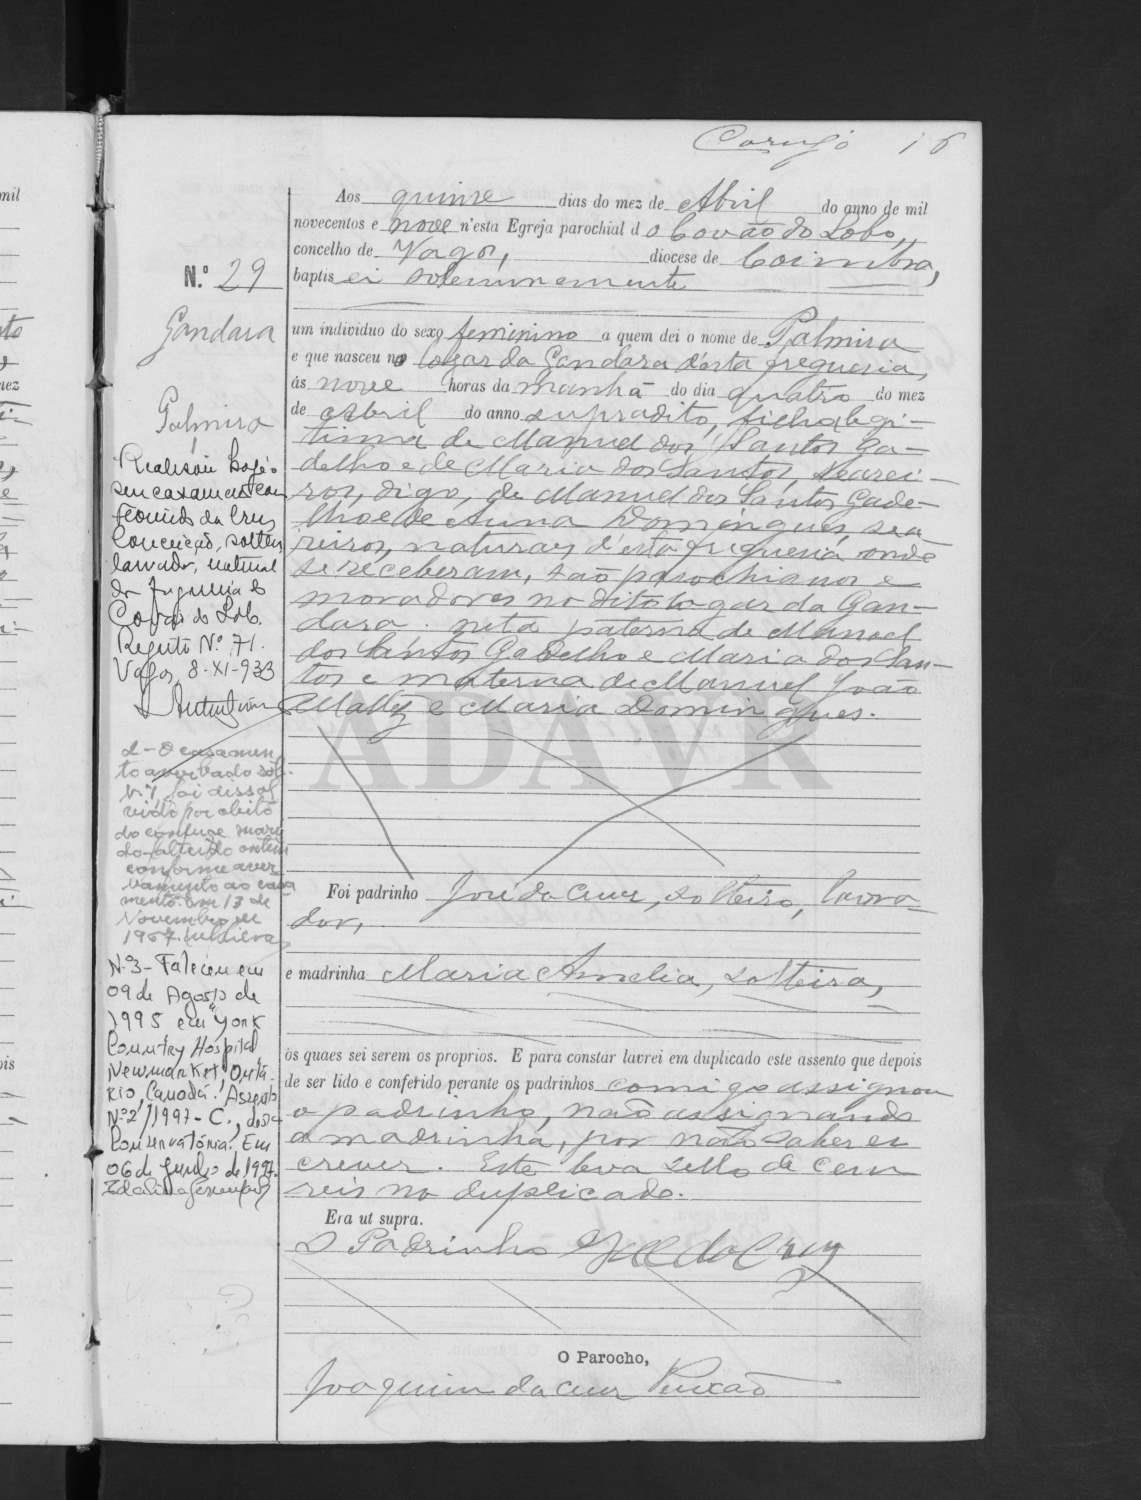 16
Aos quinze dias do mez de Abril do anno de mil
novecentos e nove n'esta Egreja parochial do Covão do Lobo,
concelho de Vagos, diocese de Coimbra,
baptisei solemnemente
N.º 29
Gandara
um individuo do sexo feminino a quem dei o nome de Palmira
e que nasceu no logar da Gandara d'esta freguesia,
ás nove horas da manhã do dia quatro do mez
de Abril do anno supradito, filha legi-
tima de Manuel dos Santos Ga-
delho e de Maria dos Santos, searei-
ros, digo, de Manuel dos Santos Gade-
lho e de Anna Domingues, sea-
reiros, naturaes d'esta freguesia onde
se receberam, são parochianos e
moradores no dito logar da Gan-
dara. neta paterna de Manoel
dos Santos Gadelho e Maria dos San-
tos e materna de Manuel João
e Maria Domingues.
Palmira
seu casamento com
da Cruz
Conceição, solteiro,
lavrador, natural
da freguesia de
Covão do Lobo.
Registo Nº 71.
Vagos, 8-XI-933
2-O casamen
to averbado sob
nº 1, foi dissol
vido por obito
do conjuge mari
do
conforme aver
bamento ao casa
mento. em 13 de
Novembro de
1967.
Nº3- Faleceu em
09 de Agosto de
1995 em "York
Country Hospital
Newmarket, Ontá
rio, Canadá. Assento
Nº2/1997-C., desta
Conservatória. Em
06 de Junho de 1997.
ADAVR
Foi padrinho José da Cruz, solteiro, lavra-
dor,
e madrinha Maria Amelia, solteira,
os quaes sei serem os proprios. E para constar lavrei em duplicado este assento que depois
de ser lido e conferido perante os padrinhos comigo assignou
o padrinho, não assignando
a madrinha, por não saber es
crever. Este leva sello de cem
reis no duplicado.
Era ut supra.
O Padrinho José da Cruz
O Parocho,
Joaquim da Cruz